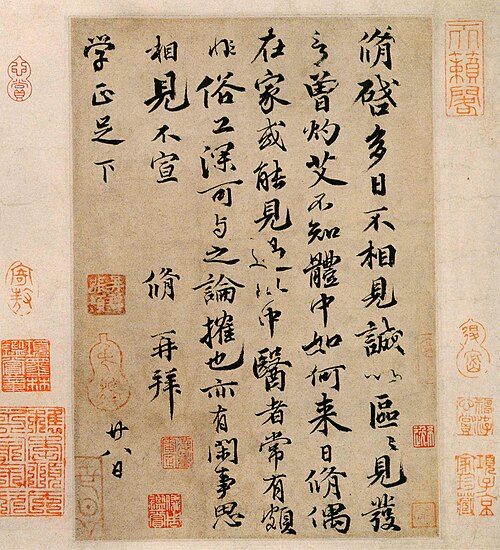 脩啓多日不相見誠以區〻見發
言曾灼艾不知體中如何来日脩偶
在家或能見過此中醫者常有頗
非俗工深可与之論搉也亦有閑事思
相見不宣 脩再拜
廿八日
学正足下
天籟閣
項子京家珍藏